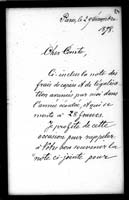 Paris, le 29 décembre
1898.
Cher Comte,
Ci-inclus la note des
frais de copies et de légalisa-
tion avancés par moi dans
l'année, qui se
monte à 28 francs.
Je profite de cette
occasion pour rappeler
à votre bon souvenir la
note ci-jointe pour